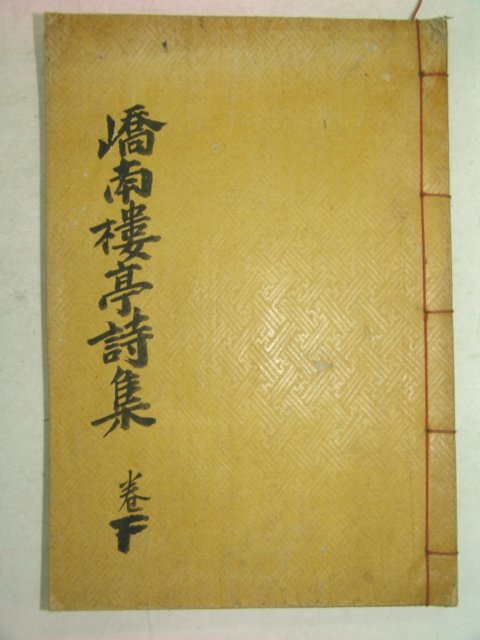 嶠南樓亭詩集
卷下